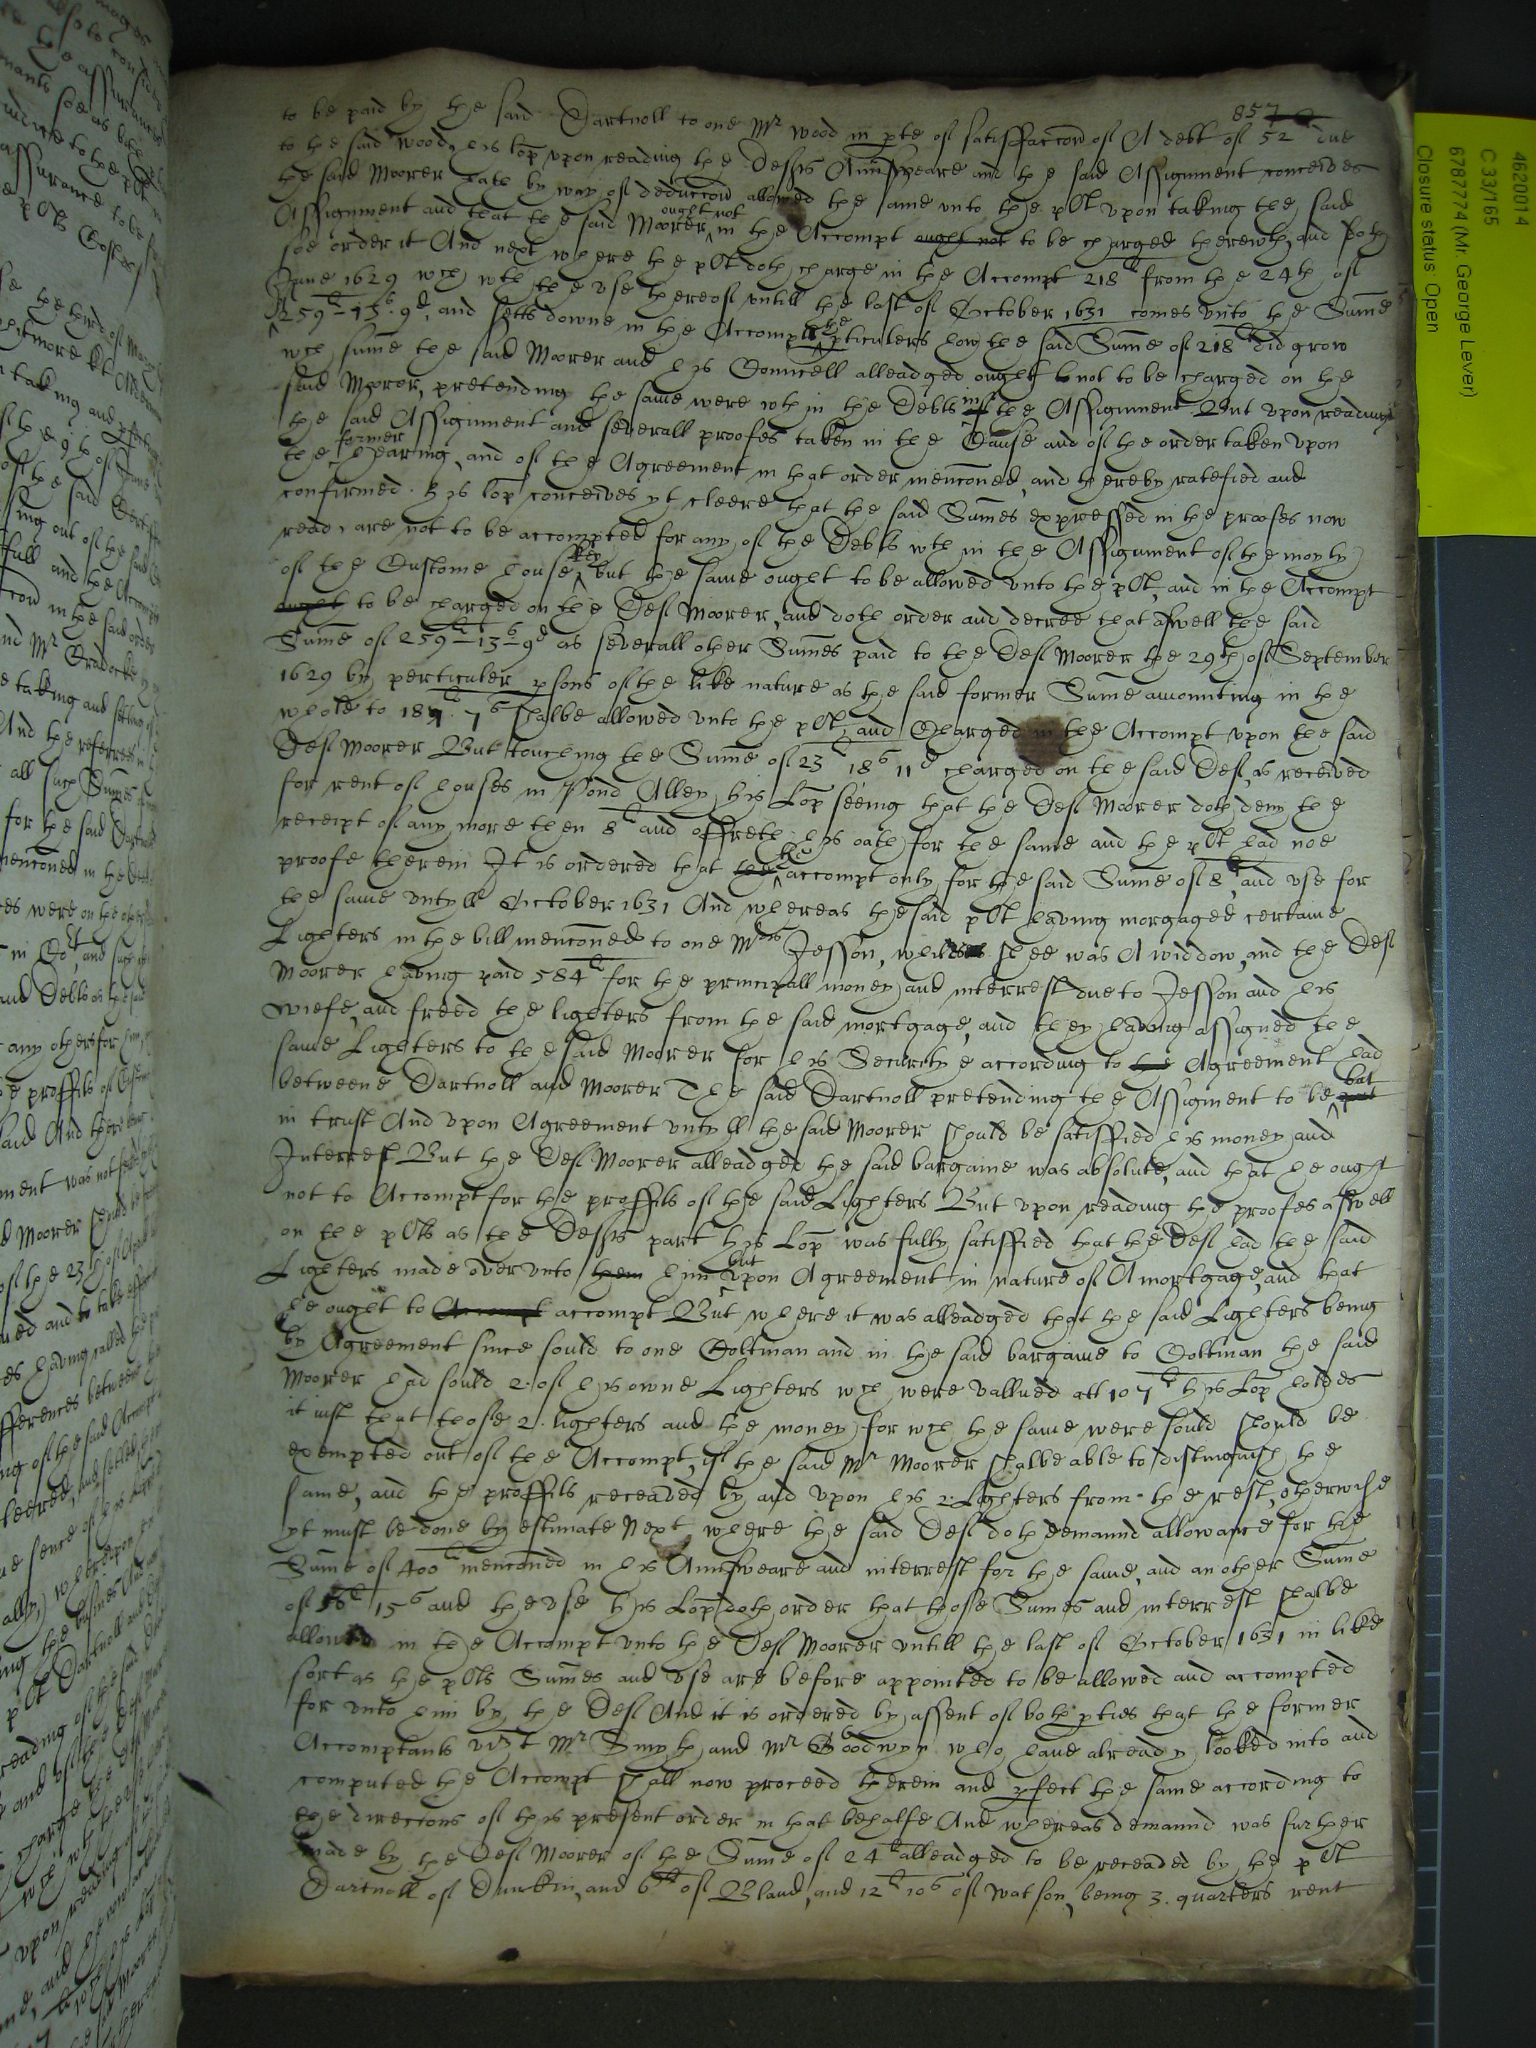 857
to be paid by the said Dartnoll to one Mr Wood in pte of satisffaccon of A debt of 52l due
to the said Wood, his lop upon reading the Defts Aunsweare and the said Assignment conceives
the said Moorer hath by way of deduccon allowed the same unto the plt upon taking the said
Assignment and that the said Moorer ought not in the Accompt ought not to be charged therewth, and doth
soe order it And next where the plt doth charge in the Accompt 218l from the 24th of
June 1629 wch wth the use thereof untill the last of October 1631 comes unto the Sume
259l–13s.9d, and setts downe in the Accompt the pticulers how the said Sume of 218l did grow
wch sume the said Moorer and his Councell alleadged ought not to be charged on the
said Moorer, pretending the same were wthin the Debts in the Assignment But upon reading
the said Assignment and severall proofes taken in the Cause and of the order taken upon
the former hearing, and of the Agreement in that order menconed, and thereby ratefied and
confirmed. his lop conceives yt cleere that the said Sumes expressed in the proofes now
read, are not to be accompted for any of the Debts wthin the Assignment of the moyty
of the Custome house key but the same ought to be allowed unto the plt, and in the Accompt
ought to be charged on the Deft Moorer, and doth order and decree that aswell the said
Sume of 259l–13s–9d as severall other Sumes paid to the Deft Moorer the 29th of September
1629 by perticuler psons of the like nature as the said former Sume amounting in the
whole to 187l. 7s shalbe allowed unto the plt, and Charged in the Accompt upon the said
Deft Moorer But touching the Sume of 23l 18s 11d charged on the said Deft, as received
for rent of houses in Pond Alley his Lop seeing that the Deft Moorer doth deny the
receipt of any more then 8l and offreth his oath for the same and the plt had noe
proofe therein It is ordered that the he accompt only for the said Sume of 8l, and use for
the same untyll October 1631 And whereas the said plt having morgaged certaine
Lighters in the bill menconed to one Mris Jesson, whilest shee was A widdow, and the Deft
Moorer having paid 584l for the principall money and interrest due to Jesson and his
wiefe, and freed the lighters from the said mortgage, and they having assigned the
same Lighters to the said Moorer for his Securitye according to the Agreement had
betweene Dartnoll and Moorer The said Dartnoll pretending the Assigment to be but
in trust And upon Agreement untyll the said Moorer should be satisffied his money and
Interrest But the Deft Moorer alleadged the said bargaine was absolute, and that he ought
not to Accompt for the proffits of the said Lighters But upon reading the proofes aswell
on the plts as the Defts part his Lop was fully satisffied that the Deft had the said
Lighters made over unto them him but upon Agreement in nature of A mortgage, and that
he ought to Accompt accompt But where it was alleadged that the said Lighters being
by Agreement since sould to one Coltman and in the said bargaine to Coltman the said
Moorer had sould 2. of his owne Lighters wch were vallued att 107l his Lop holdes
it iust that those 2. lighters and the money for wch the same were sould should be
exempted out of the Accompt, if the said Mr Moorer shalbe able to distinguish the
same, and the proffits receaved by and upon his 2. Lighters from the rest, otherwise
yt must be done by estimate Next where the said Deft doth demaund allowance for the
Sume of 400l menconed in his Aunsweare and interrest for the same, and an other Sume
of 15s and the use his Lop doth order that those Sumes and interrest shalbe
allowed in the Accompt unto the Deft Moorer untill the last of October 1631 in like
sort as the plts Sumes and use are before appointed to be allowed and accompted
for unto him by the Deft And it is ordered by assent of both pties that the former
Accomptants vizt Mr Smyth and Mr Goodwyn who have already looked into and
computed the Accompt shall now proceed therein and pfect the same according to
the direccons of this present order in that behalfe And whereas demaund was further
made by the Deft Moorer of the Sume of 24l alleadged to be receaved by the plt
Dartnoll of Dunckin, and 6l of Bland, and 12l 10s of Watson, being 3. quarters rent
4620014
C 33/165
6787774 (Mr. George Lever)
Closure status: Open